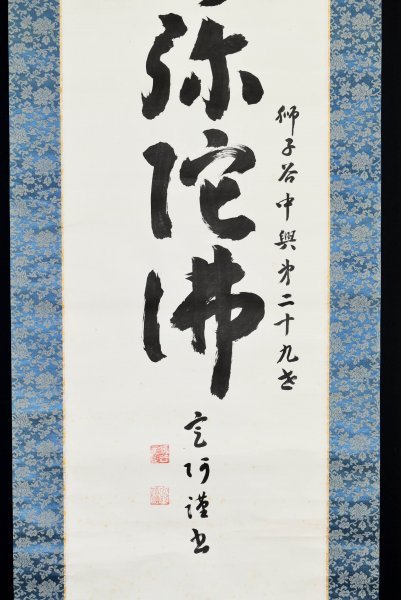 弥陀佛
獅子谷中興第二十九世
定阿謹書